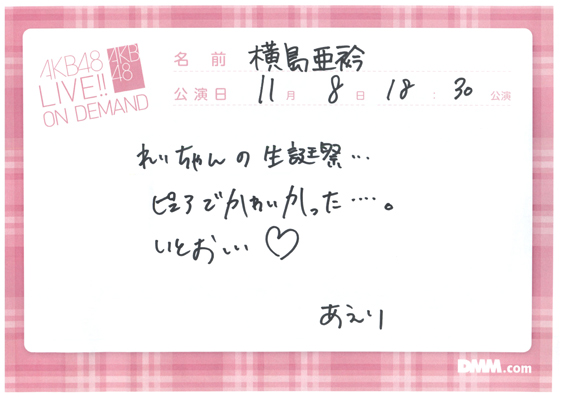 AKB48
LIVE!!
ON DEMAND
AKB
48
名前 横島亜衿
公演日 11月8日 18:30 公演
れいちゃんの生誕祭…
ピュアでかわいかった….。
いとおしい♡
あえり
DMM.com